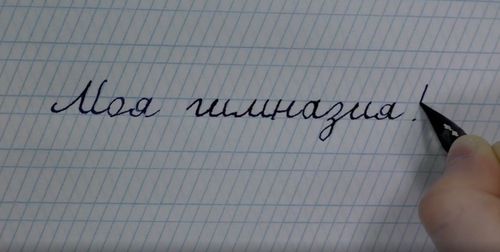 Моя гимназия!